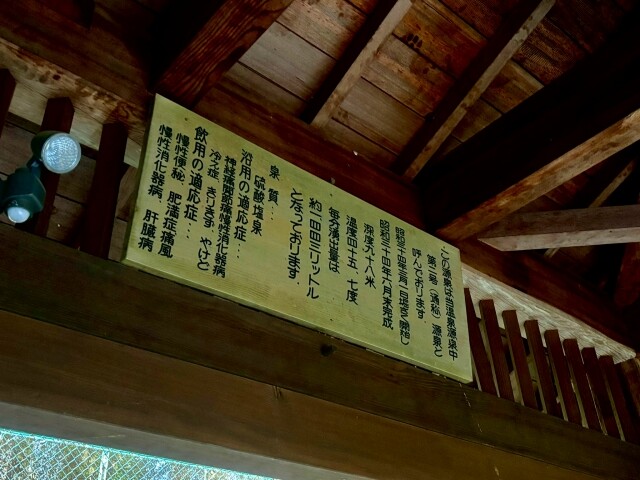 この源泉は当温泉源泉中
第二号(通称)源泉と
呼んでおります
昭和三十四年三月一日堀さく開始し
昭和三十四年六月末完成
深度九十八米
温度四十五、七度
毎分湧出量は
約一四三リットル
となっております.
泉質…
硫酸塩泉
浴用の適応症…
神経痛関節痛慢性消化器病
冷え症 きりきず やけど
飲用の適応症…
慢性便秘 肥満症痛風
慢性消化器病、肝臓病